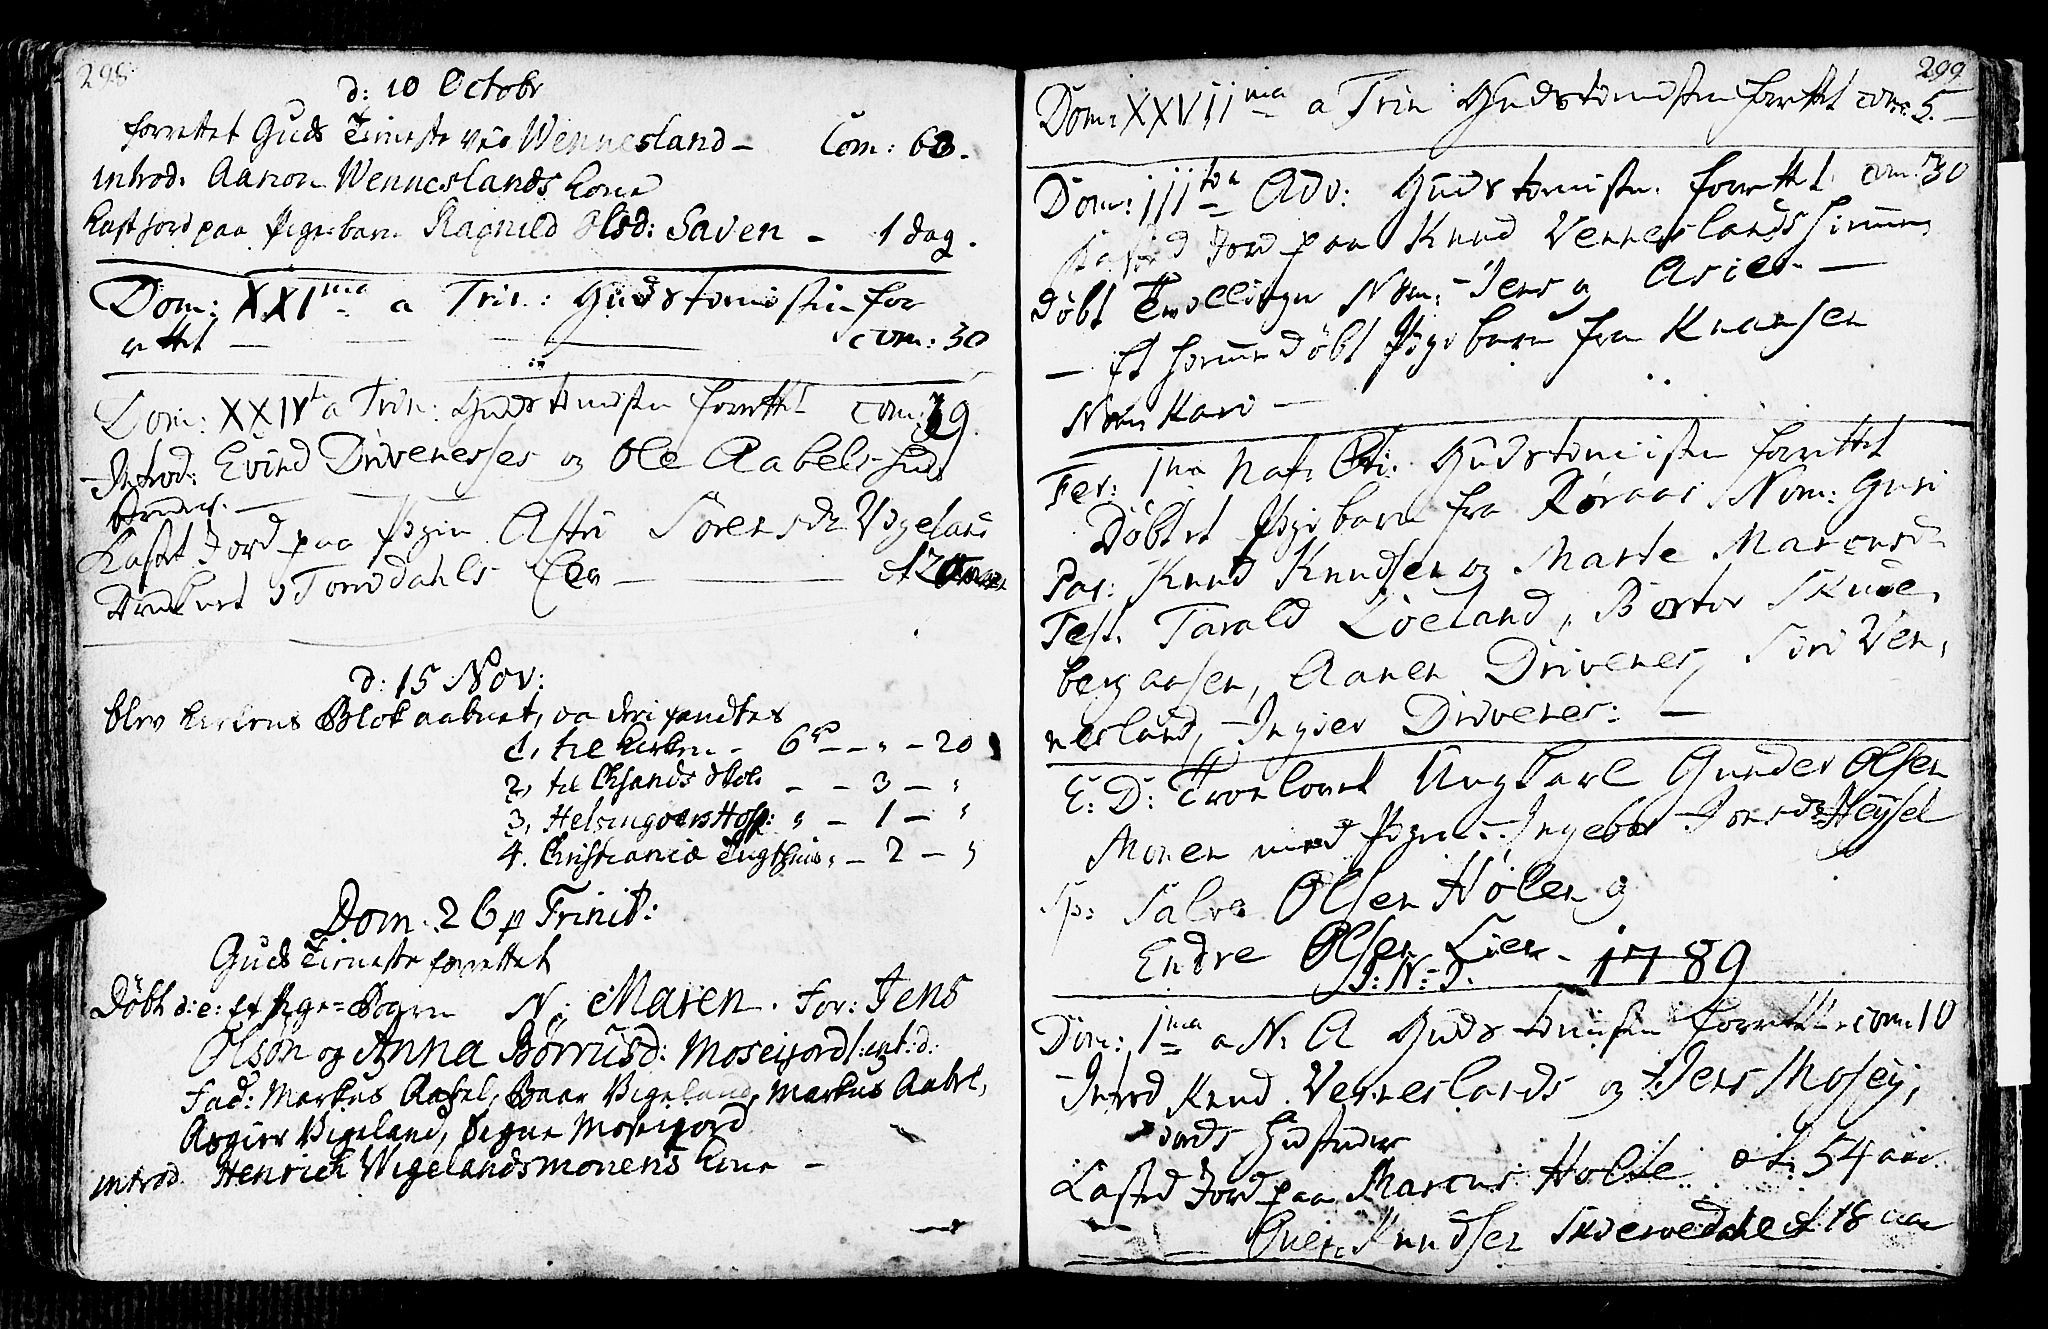 298
d: 10 Octobr
forrettet Guds Tieneste ved Wennesland – Com: 63.
introd: Aanon Wenneslands kone
kast jord paa Pigebarn Ragnild Olsd: Saven – 1 dag.
Dom: XXI a Trin: Gudstienisten for
rettet com: 30
Dom: XXIV a Trin: Gudstienisten forrettet com: 39.
Introd: Evind Drivenesses og Ole Aabels
Kastet Jord paa Pigen Astri Sørensdr Vigeland
Tomdahls
d: 15 Nov:
blev kirkens Blok aabnet, va deri fandtes
1, til kirken – 6 – – " – 20
2, til Chsands Skol – – 3 – "
3, Helsingoers Hosp: " – 1 – "
4. Christiania Tugthuus, – 2 – "
Dom. 26 p Trinit:
Guds Tieneste forrettet
Døbt d: e: et Pige=Barn N: Maren. For: Jens
Olson og Anna Børrusd: Moseijord
Fad: Markus Aabel, Baar Vigeland, Markus Aabel,
Asgier Vigeland, Signe Moseijord
introd. Henrich Wigelandsmonens kone –
299
Dom: XXVII a Trin: Gudstienisten forrettet com: 5. –
Dom: III Adv: Gudstienisten forrettet com: 30
Kasted Jord paa Knud Venneslands
Døbt Tvillinger Nom: Jens og Aslev –
– Et hiemmedøbt Pigebarn fra Knarsen
Nom Kari –
Fer: 1ma Nat: Chri: Gudstienisten forrettet
Døbt et Pigebarn fra Røraas Nom: Guri
Par: Knud Knudsen og Marte Marcusdr
Test. Tarald Løeland, Bertor Skue,
bergaasen, Aanen Drivenes, Siri Ven,
nesland, Ingier Drivenes: –
E: D: Troelovet Ungkarl Gunder Olsen
Monen med Pigen Ingebor Jonsdr Heysel
Sp: Salve Olsen Hølen og
Endre Olsen Lien –
I: N: J. 1789
Dom: 1ma a N: A Gudstienisten forrettet com: 10
Introd Knud Venneslands og Jens Mosey,
jords Hustruer
Kasted Jord paa Marcus Holte æt: 54 aar.
– – Knudsen æt 18 aar